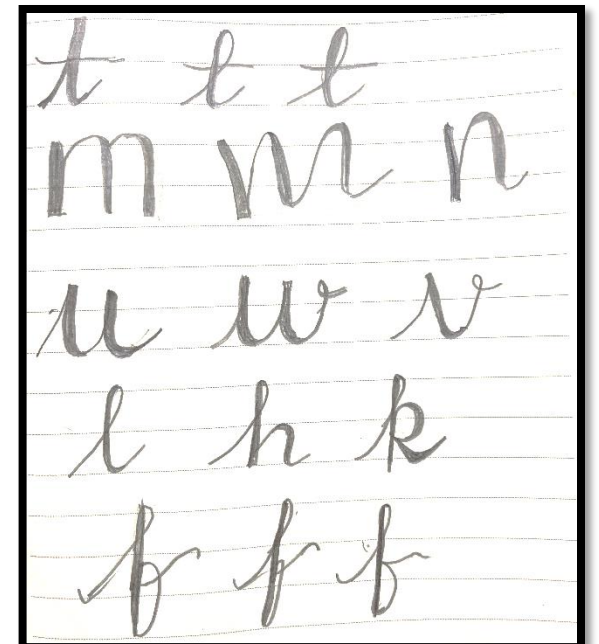 t t t
m m n
u w v
l h k
f f f